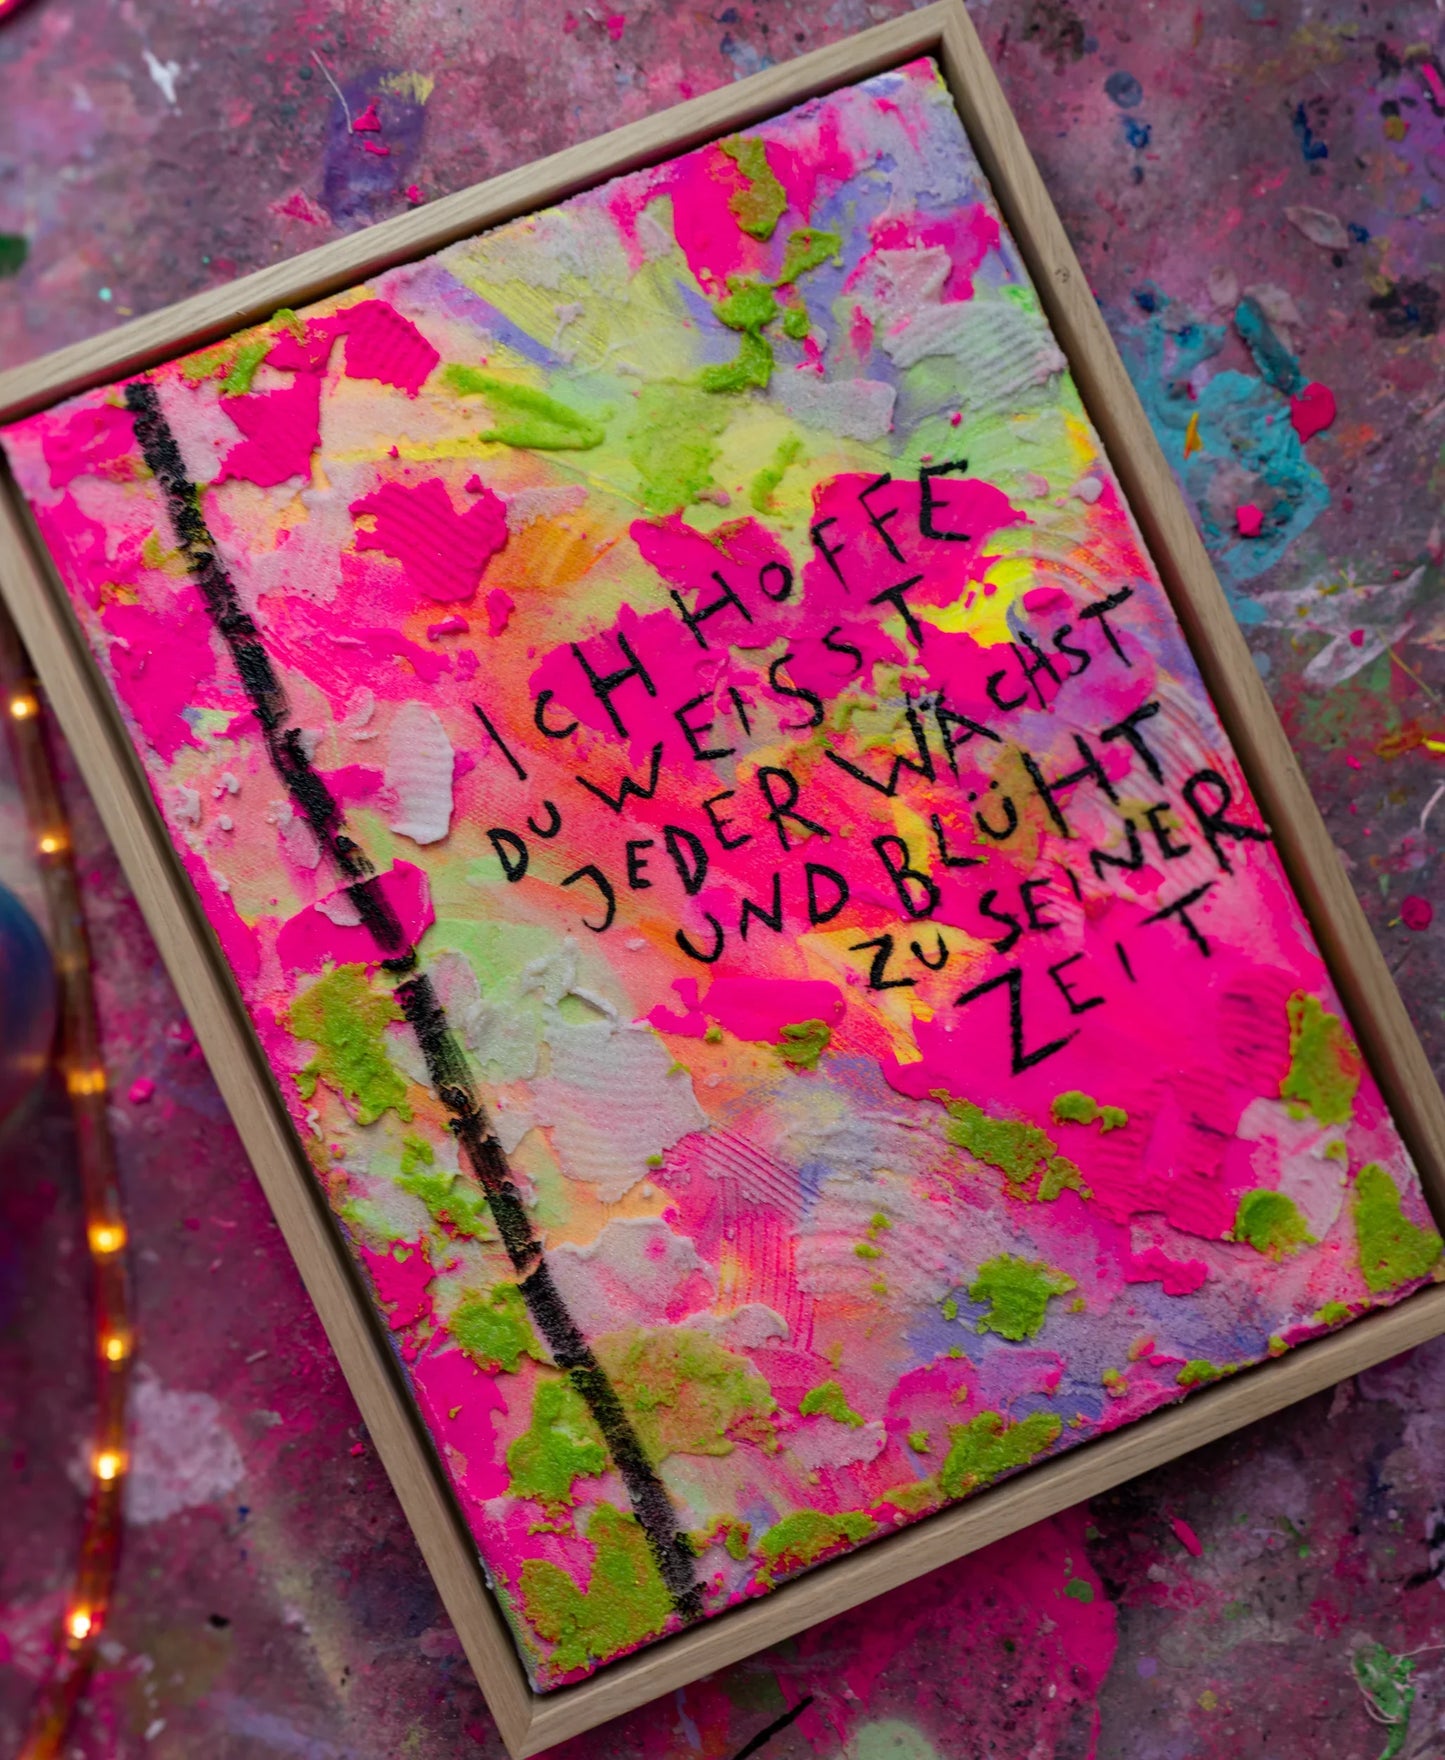 ICH HOFFE
DU WEISST
JEDER WÄCHST
UND BLÜHT
ZU SEINER
ZEIT